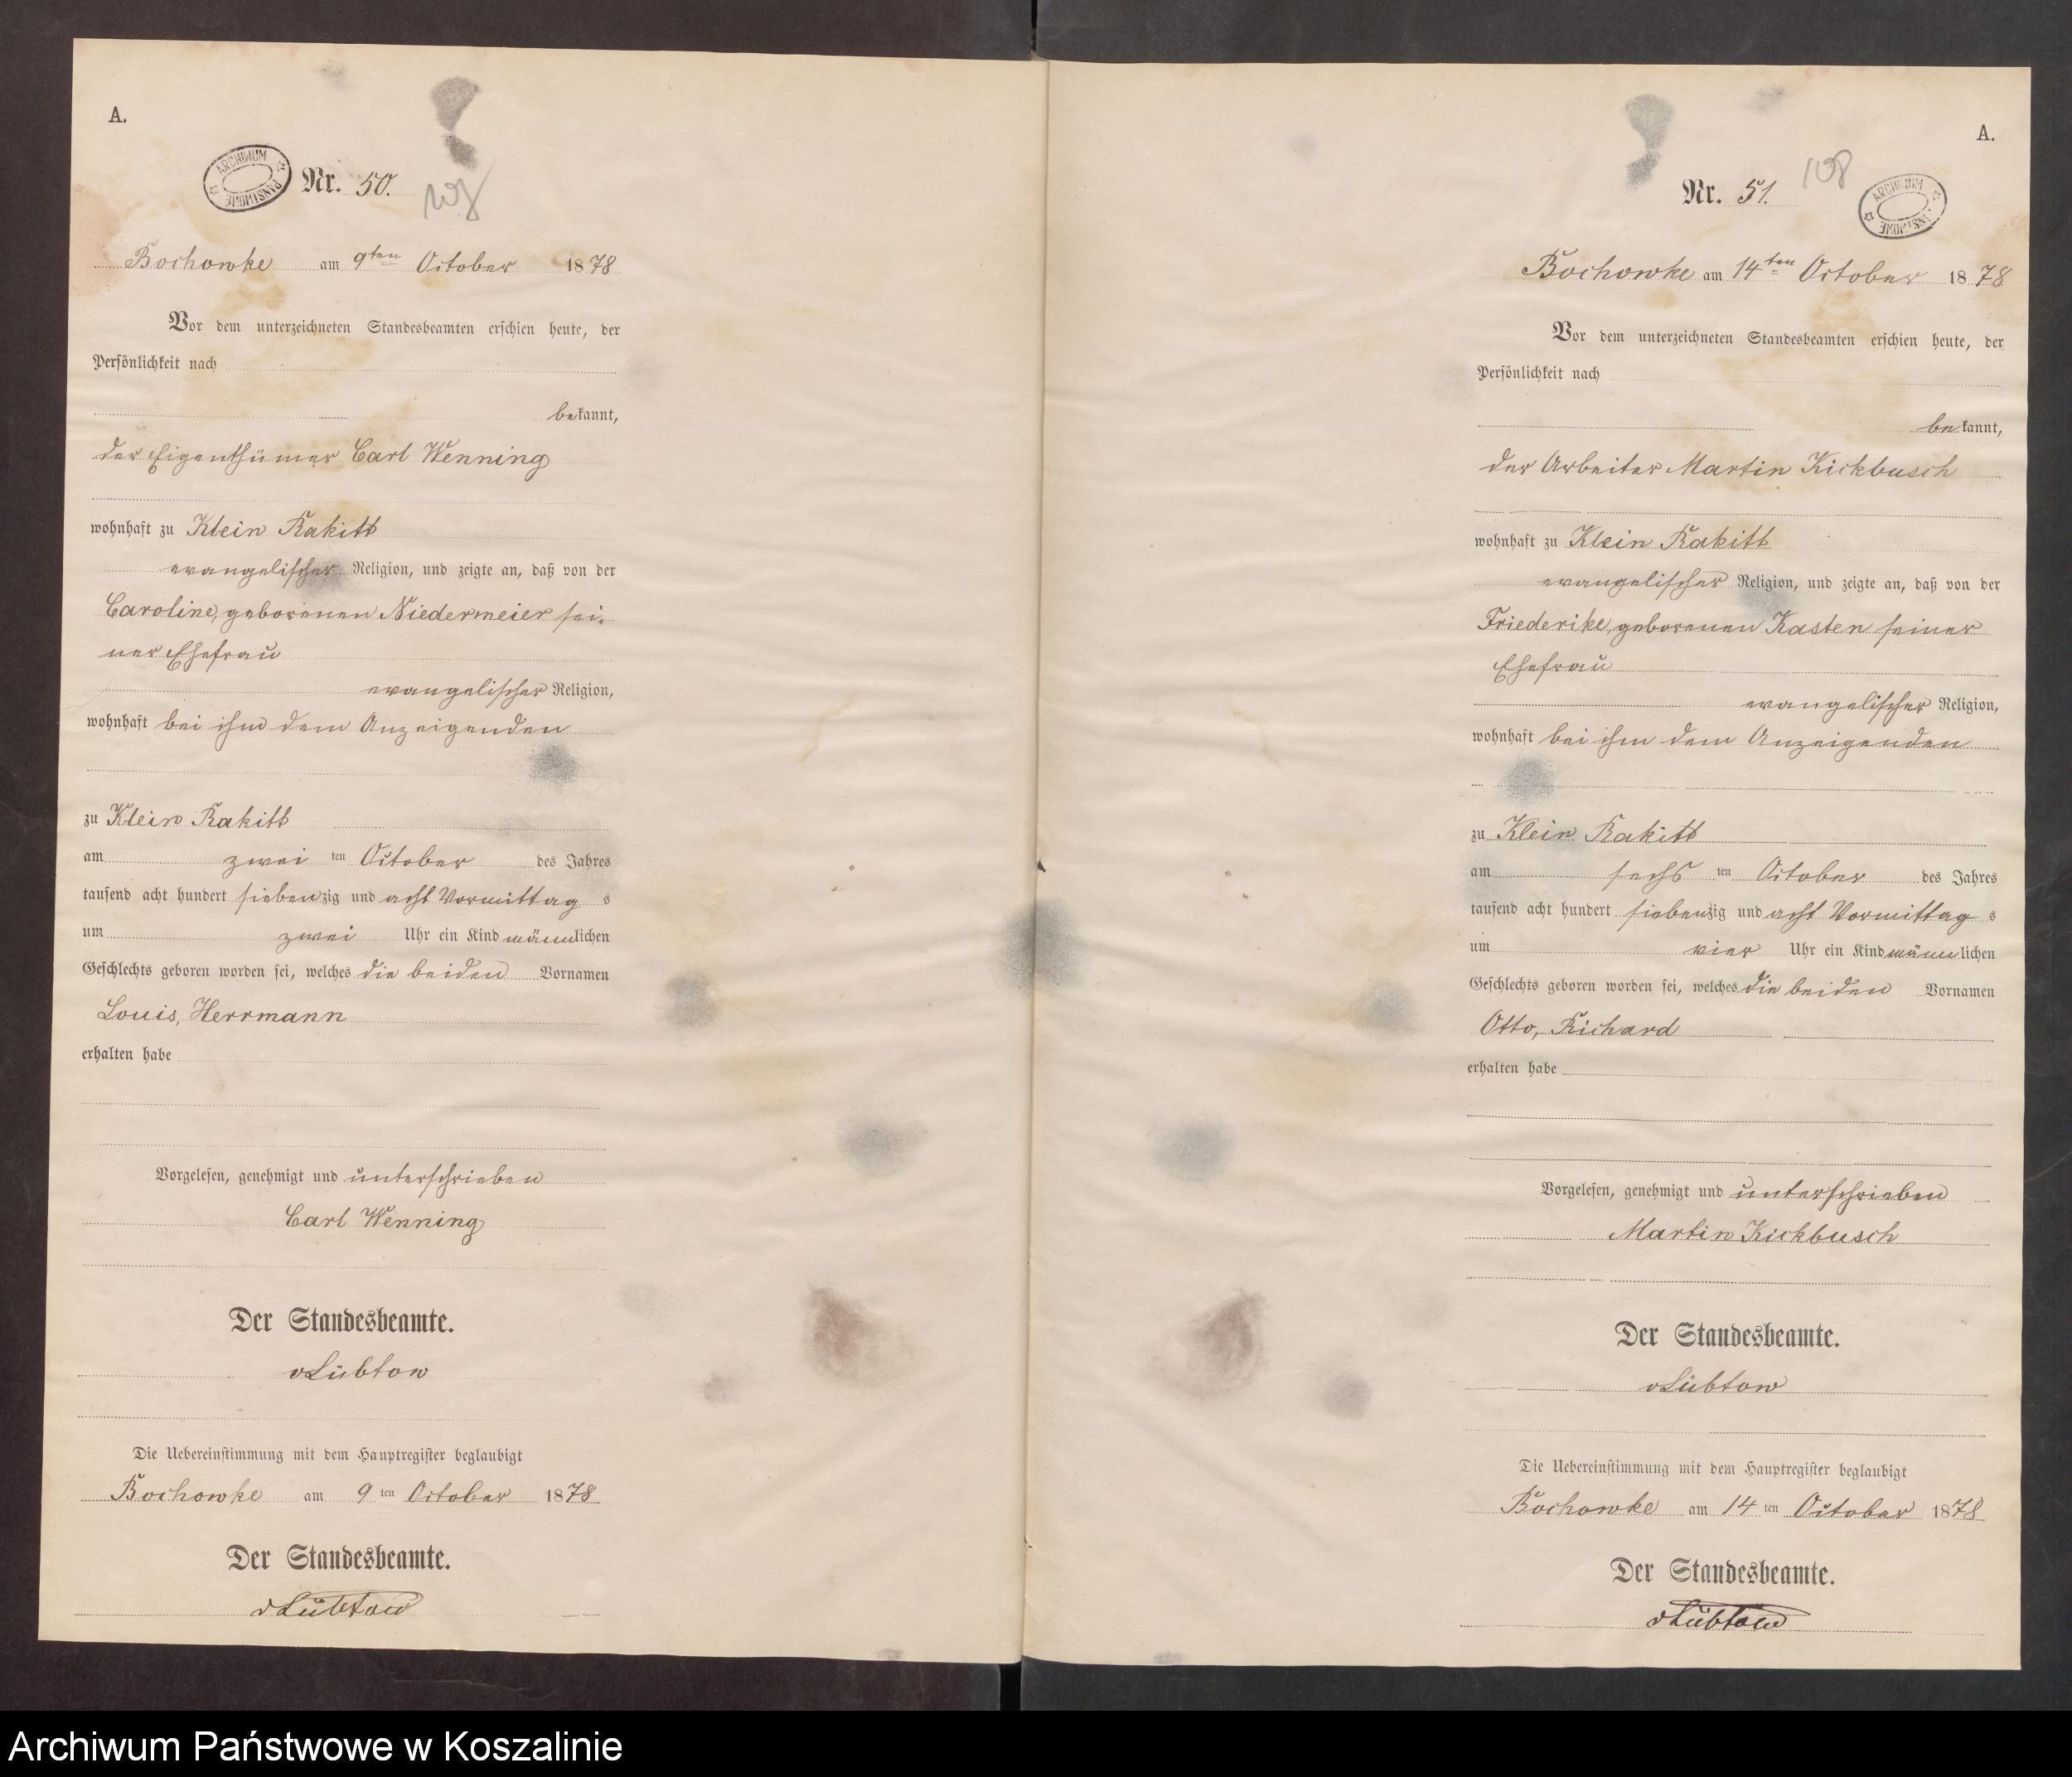 A.
ARCHIWUM PAŃSTWOWE
Nr. 50.
Bochowke am 9ten October 1878
Vor dem unterzeichneten Standesbeamten erschien heute, der
Persönlichkeit nach
bekannt,
der Eigenthümer Carl Wenning
wohnhaft zu Klein Rakitt
evangelischer Religion, und zeigte an, daß von der
Caroline, geborenen Niedermeier sei-
ner Ehefrau
evangelischer Religion,
wohnhaft bei ihm dem Anzeigenden
zu Klein Rakitt
am zwei ten October des Jahres
tausend acht hundert siebenzig und acht Vormittag s
um zwei Uhr ein Kind männlichen
Geschlechts geboren worden sei, welches die beiden Vornamen
Louis, Herrmann
erhalten habe
Vorgelesen, genehmigt und unterschrieben
Carl Wenning
Der Standesbeamte.
vLübtow
Die Uebereinstimmung mit dem Hauptregister beglaubigt
Bochowke am 9 ten October 1878
Der Standesbeamte.
vLübtow
A.
Nr. 51. 108
ARCHIWUM PAŃSTWOWE
Bochowke am 14ten October 1878
Vor dem unterzeichneten Standesbeamten erschien heute, der
Persönlichkeit nach
bekannt,
der Arbeiter Martin Kickbusch
wohnhaft zu Klein Rakitt
evangelischer Religion, und zeigte an, daß von der
Friederike, geborenen Kasten seiner
Ehefrau
evangelischer Religion,
wohnhaft bei ihm dem Anzeigenden
zu Klein Rakitt
am sechs ten October des Jahres
tausend acht hundert siebenzig und acht Vormittag s
um vier Uhr ein Kind männlichen
Geschlechts geboren worden sei, welches die beiden Vornamen
Otto, Richard
erhalten habe
Vorgelesen, genehmigt und unterschrieben
Martin Kickbusch
Der Standesbeamte.
vLübtow
Die Uebereinstimmung mit dem Hauptregister beglaubigt
Bochowke am 14 ten October 1878
Der Standesbeamte.
vLübtow
Archiwum Państwowe w Koszalinie